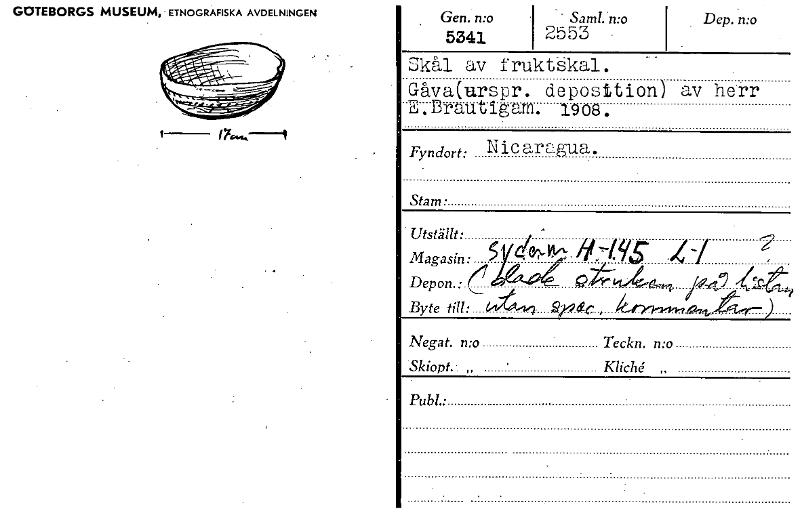 GÖTEBORGS MUSEUM, ETNOGRAFISKA AVDELNINGEN
17cm
Gen. n:o Saml. n:o Dep. n:o
5341 2553
Skål av fruktskal.
Gåva(urspr. deposition) av herr
E.Brautigam. 1908.
Fyndort: Nicaragua.
Stam:
Utställt:
Magasin: Sydam H-145 L-1 ?
Depon.: ( struken på listan
Byte till: utan spec. kommentar)
Negat. n:o Teckn. n:o
Skiopt. „ Kliché „
Publ.: